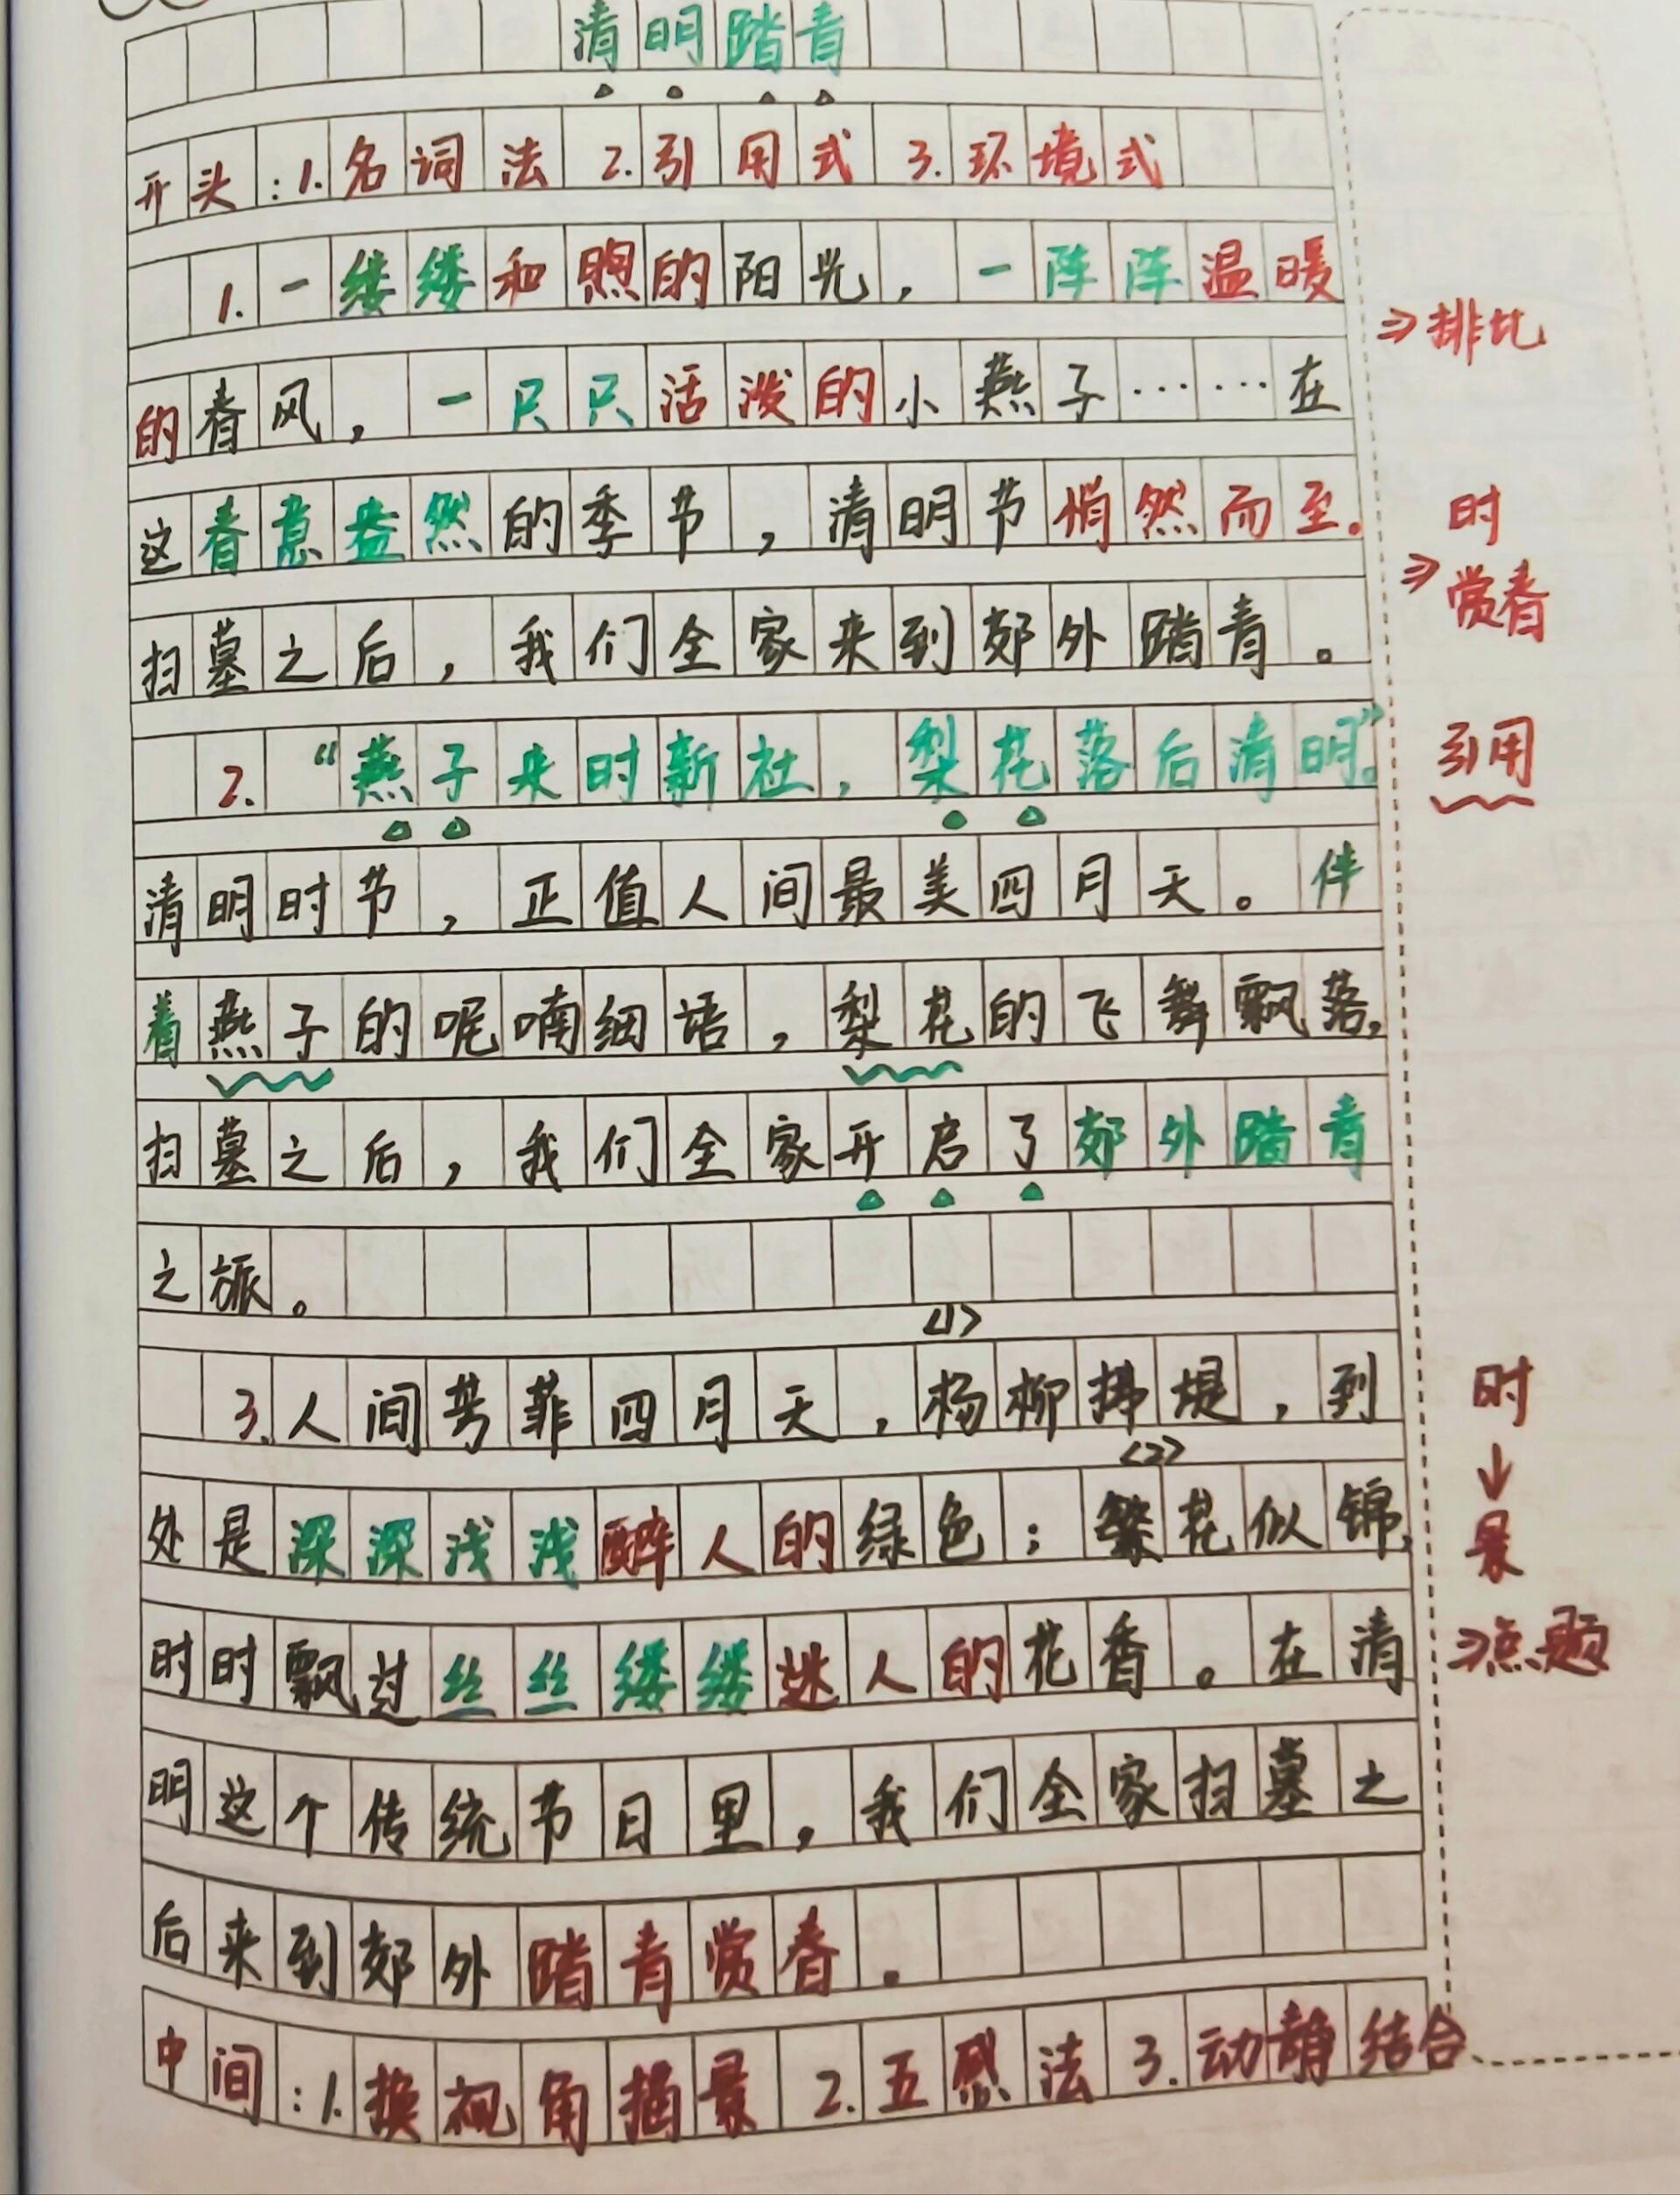 清明踏青
开头:1.名词法 2.引用式 3.环境式
1.一缕缕和煦的阳光,一阵阵温暖
⇒排比
的春风,一只只活泼的小燕子……在
这春意盎然的季节,清明节悄然而至。
时
⇒赏春
扫墓之后,我们全家来到郊外踏青。
2.“燕子来时新社,梨花落后清明。”
引用
清明时节,正值人间最美四月天。伴
着燕子的呢喃细语,梨花的飞舞飘落,
扫墓之后,我们全家开启了郊外踏青
之旅。
<1>
3.人间芳菲四月天,杨柳拂堤,到
时
↓
景
⇒点题
<2>
处是深深浅浅醉人的绿色;繁花似锦,
时时飘过丝丝缕缕迷人的花香。在清
明这个传统节日里,我们全家扫墓之
后来到郊外踏青赏春。
中间:1.换视角描景 2.五感法 3.动静结合